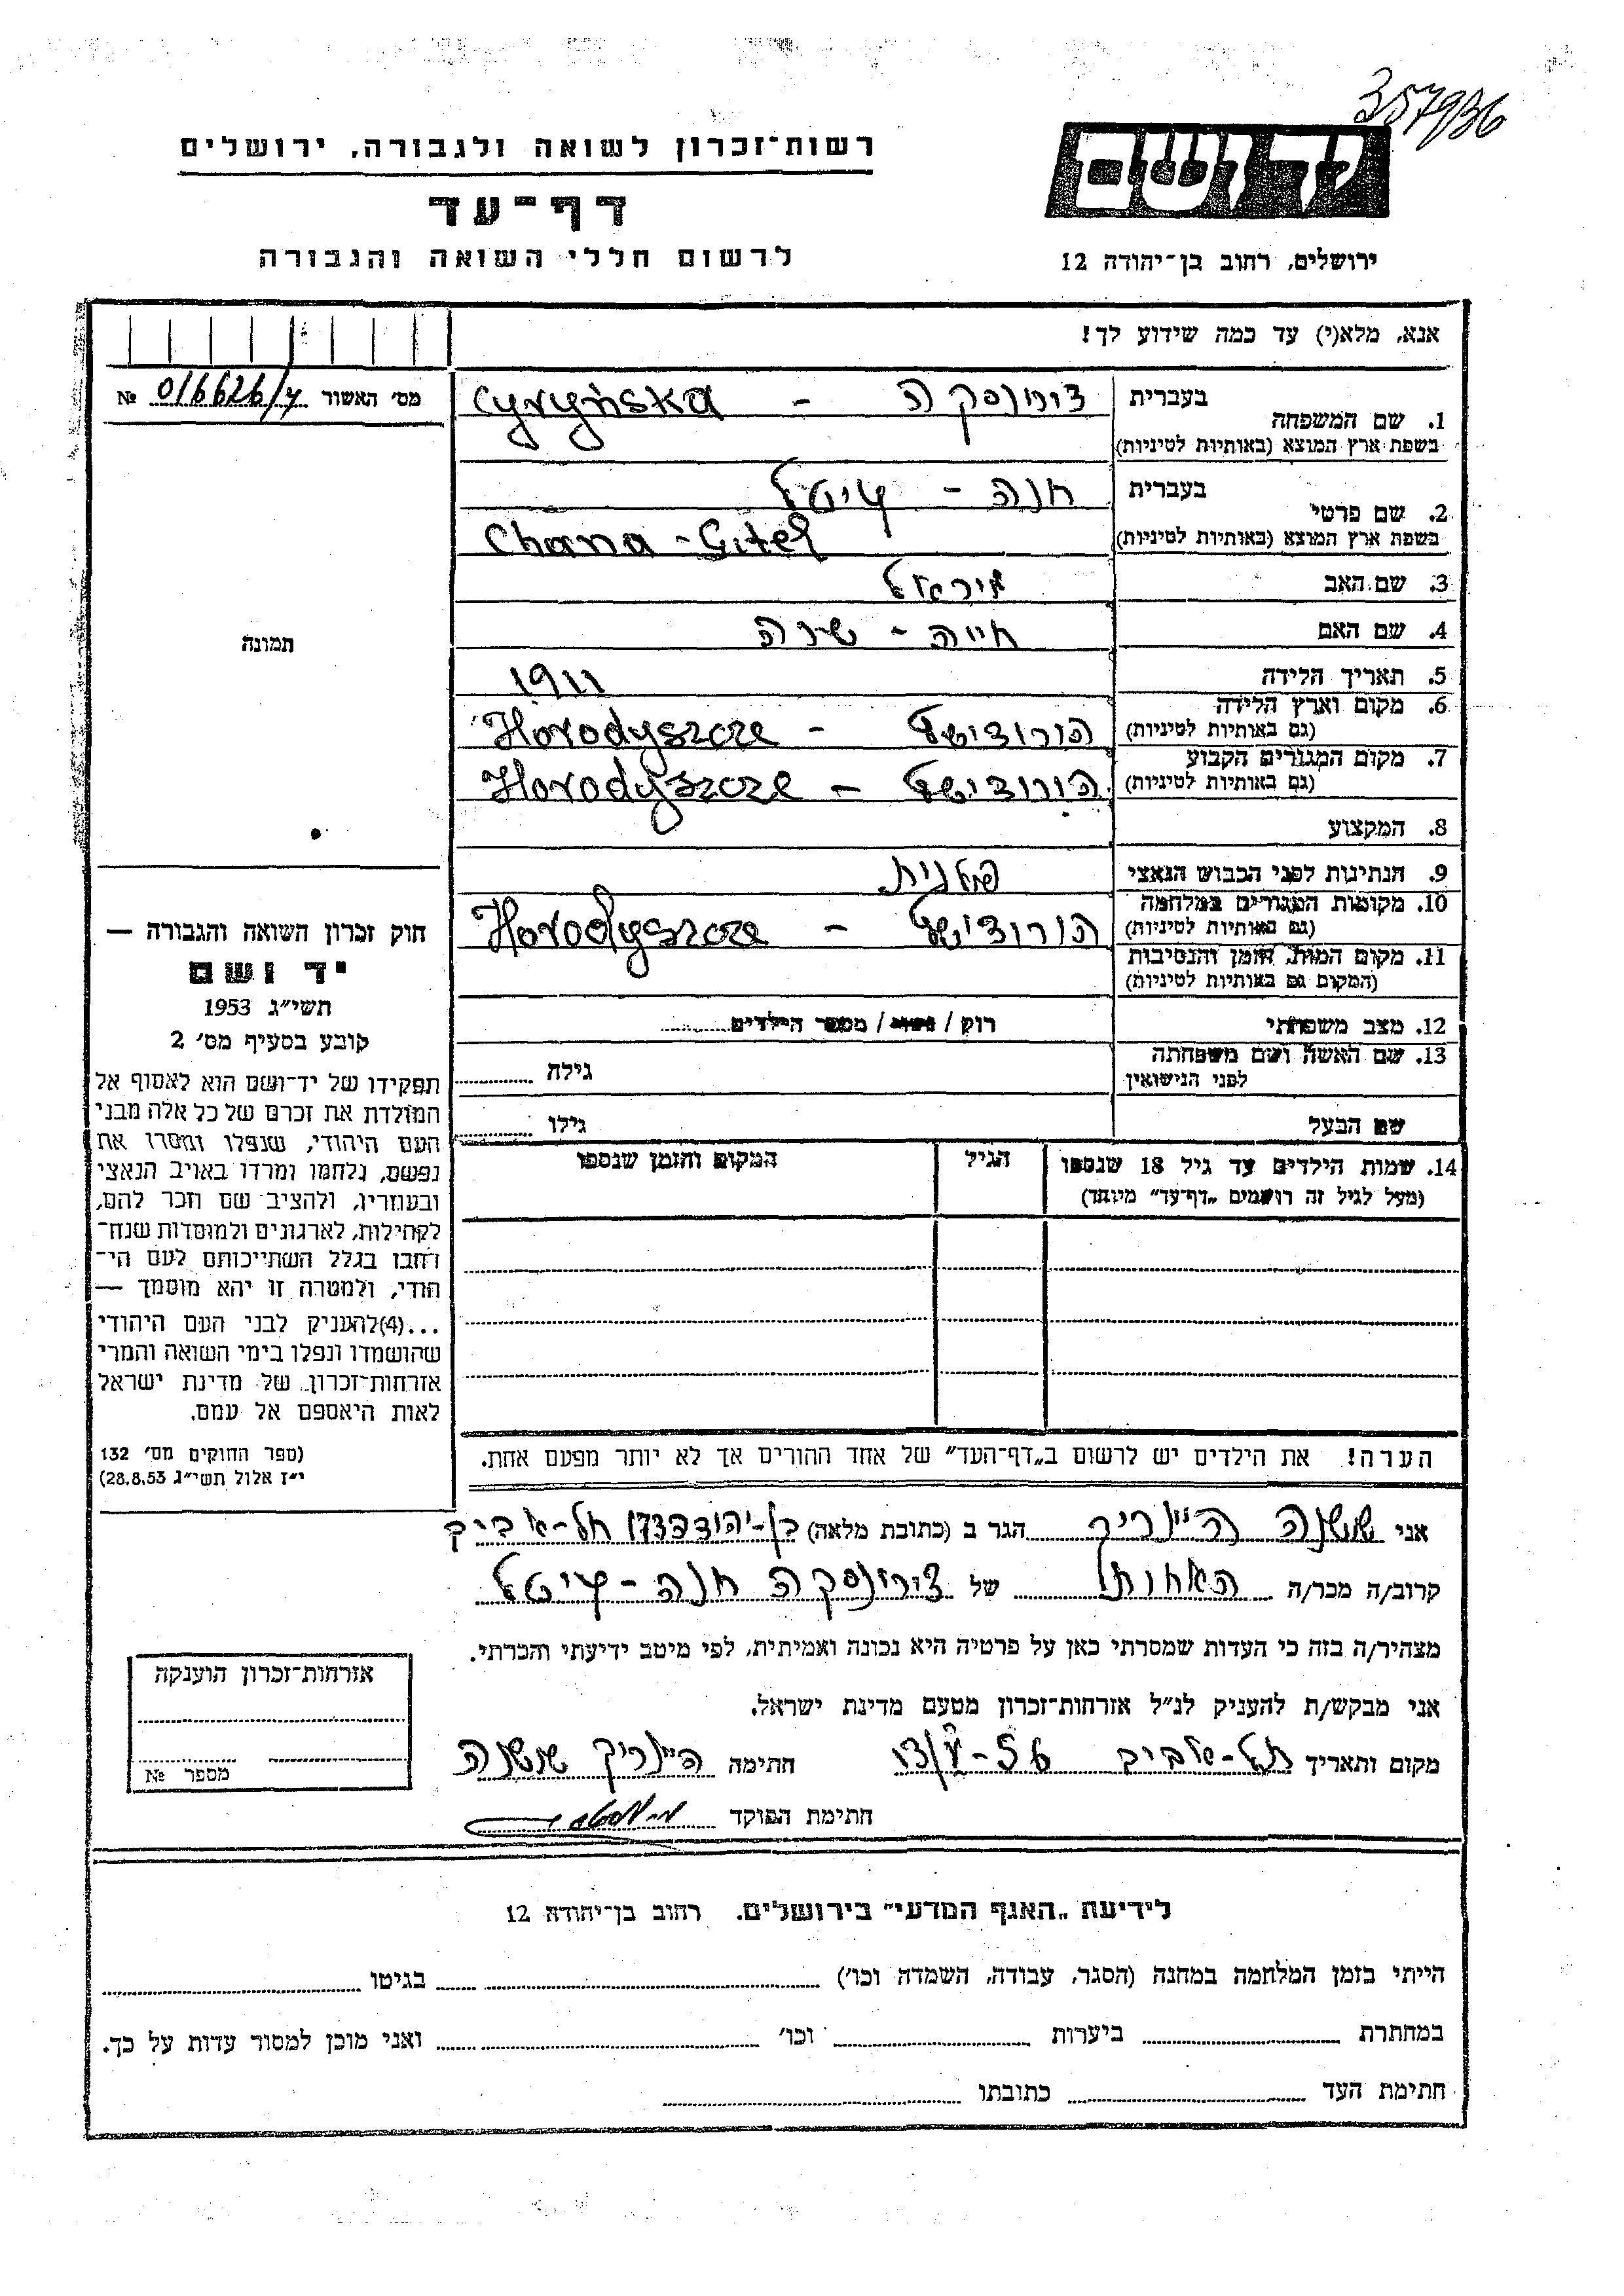 357936
יד ושם
רשות־זכרון לשואה ולגבורה, ירושלים
דף־עד
לרשום חללי השואה והגבורה
ירושלים, רחוב בן־יהודה 12
אנא, מלא(י) עד כמה שידוע לך!
מס׳ האשור 016626/ № 
תמונה
1. שם המשפחה בעברית
בשפת ארץ המוצא (באותיות לטיניות)
צירינסקה - Cyryńska
2. שם פרטי בעברית חנה - גיטל
בשפת ארץ המוצא (באותיות לטיניות) Chana - Gitel
3. שם האב
4. שם האם חייה - שרה
5. תאריך הלידה 1911
6. מקום וארץ הלידה
(גם באותיות לטיניות)
הורודישץ - Horodyszcze
7. מקום המגורים הקבוע
(גם באותיות לטיניות)
הורודישץ - Horodyszcze
8. המקצוע
9. הנתינות לפני הכבוש הנאצי פולנית
10. מקומות המגורים במלחמה
(גם באותיות לטיניות)
הורודישץ - Horodyszcze
11. מקום המות, הזמן והנסיבות
(המקום גם באותיות לטיניות)
12. מצב משפחתי רוק / נשוי / מספר הילדים
13. שם האשה ושם משפחתה
לפני הנישואין
גילה
שם הבעל גילו
14. שמות הילדים עד גיל 18 שנספו
(מעל לגיל זה רושמים „דף־עד״ מיוחד)
הגיל
המקום והזמן שנספו
הערה! את הילדים יש לרשום ב„דף־העד״ של אחד ההורים אך לא יותר מפעם אחת.
חוק זכרון השואה והגבורה —
יד ושם
תשי״ג 1953
קובע בסעיף מס׳ 2
תפקידו של יד־ושם הוא לאסוף אל
המולדת את זכרם של כל אלה מבני
העם היהודי, שנפלו ומסרו את
נפשם, נלחמו ומרדו באויב הנאצי
ובעוזריו, ולהציב שם וזכר להם,
לקהילות, לארגונים ולמוסדות שנח־
רבו בגלל השתייכותם לעם הי־
הודי, ולמטרה זו יהא מוסמך —
...(4)להעניק לבני העם היהודי
שהושמדו ונפלו בימי השואה והמרי
אזרחות־זכרון של מדינת ישראל
לאות היאספם אל עמם.
(ספר החוקים מס׳ 132
י״ז אלול תשי״ג 28.8.53)
אני שושנה היינריך הגר ב (כתובת מלאה) בן-יהודה תל-אביב
קרוב/ה מכר/ה האחות של צירינסקה חנה-גיטל
מצהיר/ה בזה כי העדות שמסרתי כאן על פרטיה היא נכונה ואמיתית, לפי מיטב ידיעתי והכרתי.
אני מבקש/ת להעניק לנ״ל אזרחות־זכרון מטעם מדינת ישראל.
מקום ותאריך תל-אביב חתימה היינריך שושנה
חתימת הפוקד
אזרחות־זכרון הוענקה
מספר №
לידיעת „האגף המדעי״ בירושלים. רחוב בן־יהודה 12
הייתי בזמן המלחמה במחנה (הסגר, עבודה, השמדה וכו׳) בגיטו
במחתרת ביערות וכו׳ ואני מוכן למסור עדות על כך.
חתימת העד כתובתו